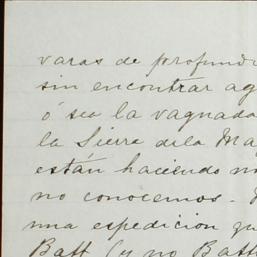 varas de profundi
sin encontrar ag
ó sea la vaguada
la Sierra dela Ma
están haciendo
no conocemos.
una espedicion qu
Batt (y no Batt